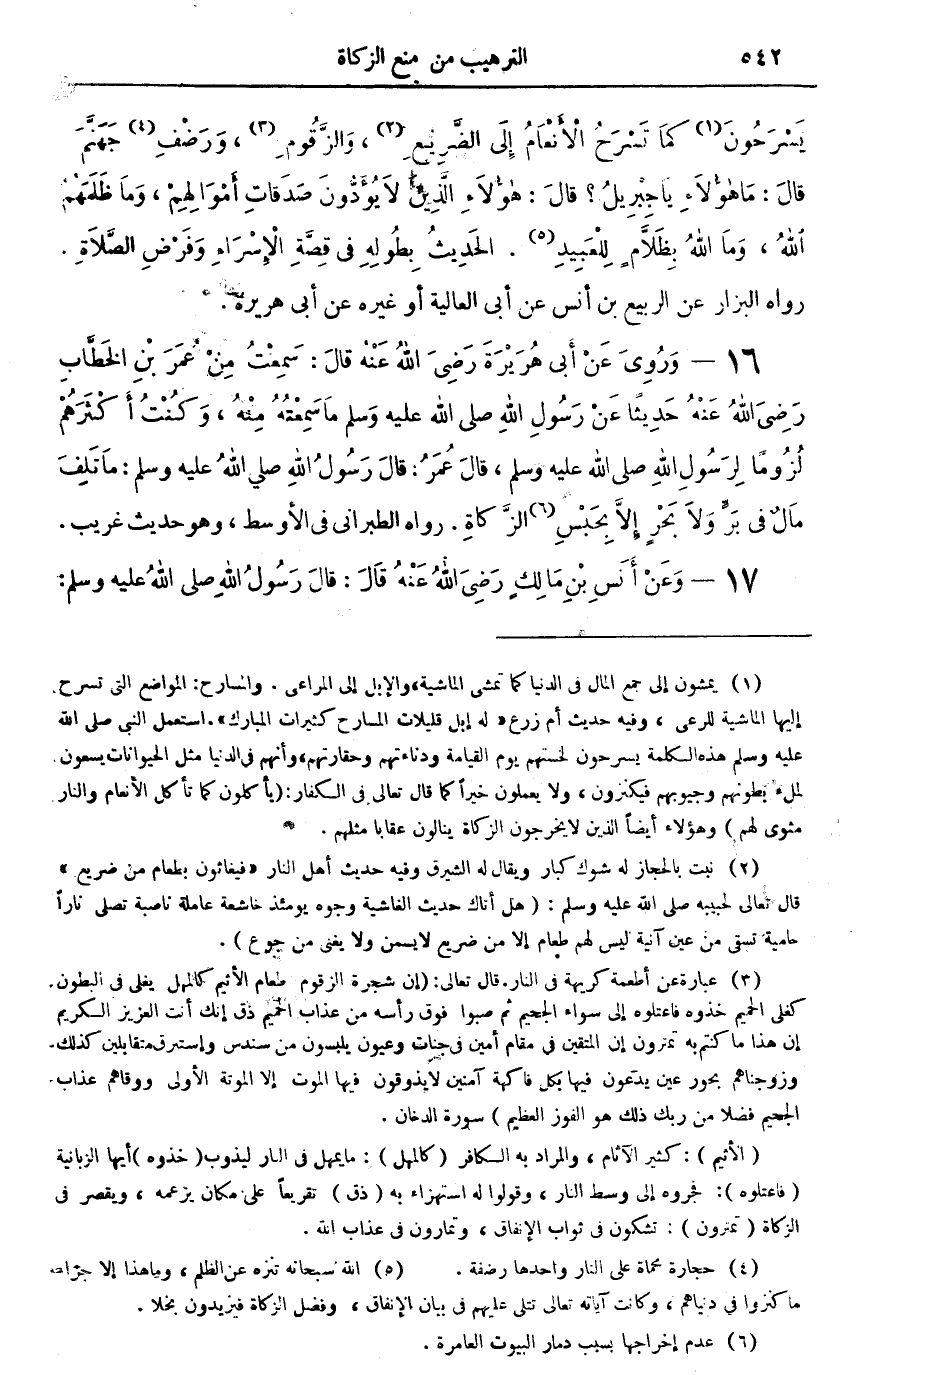 ٥٤٢ الترهيب من منع الزكاة
يَسْرَحُونَ(١) كَمَا تَسْرَحُ الْأَنْعَامُ إِلَى الضَّرِيْعِ(٢)، وَالزَّقُّومِ(٣)، وَرَضْفِ(٤) جَهَنَّمَ
قالَ: مَاهٰؤُلَاءِ يَاجِبْرِيلُ؟ قالَ: هٰؤُلَاءِ الَّذِينَ لَا يُؤَدُّونَ صَدَقاتِ أَمْوَالِهِمْ، وَمَا ظَلَمَهُمُ
اللهُ، وَمَا اللهُ بِظَلَّامٍ لِلْعَبِيدِ(٥). الحَدِيثُ بِطُولِهِ فى قِصَّةِ الْإِسْرَاءِ وَفَرْضِ الصَّلَاةِ.
رواه البزار عن الربيع بن أنس عن أبى العالية أو غيره عن أبى هريرة.
١٦ — وَرُوِىَ عَنْ أَبِى هُرَيْرَةَ رَضِىَ اللهُ عَنْهُ قالَ: سَمِعْتُ مِنْ عُمَرَ بْنِ الخَطَّابِ
رَضِىَ اللهُ عَنْهُ حَدِيثًا عَنْ رَسُولِ اللهِ صلى الله عليه وسلم مَاسَمِعْتُهُ مِنْهُ، وَكُنْتُ أَكْثَرَهُمْ
لُزُومًا لِرَسُولِ اللهِ صلى الله عليه وسلم، قالَ عُمَرُ: قالَ رَسُولُ اللهِ صلي اللهُ عليه وسلم: مَا تَلِفَ
مَالٌ فى بَرٍّ وَلَا بَحْرٍ إِلاَّ بِحَبْسِ(٦) الزَّكاةِ. رواه الطبرانى فى الأوسط، وهو حديث غريب.
١٧ — وَعَنْ أَنَسِ بْنِ مَالِكٍ رَضِىَ اللهُ عَنْهُ قَالَ: قالَ رَسُولُ اللهِ صلى اللهُ عليه وسلم:
(١) يمشون إلى جمع المال فى الدنيا كما تمشى الماشية، والإبل إلى المراعى. والمسارح: المواضع التى تسرح
إليها الماشية للرعى، وفيه حديث أم زرع «له إبل قليلات المسارح كثيرات المبارك». استعمل النبى صلى الله
عليه وسلم هذه الكلمة يسرحون لخستهم يوم القيامة ودناءتهم وحقارتهم، وأنهم فى الدنيا مثل الحيوانات يسعون
لملء بطونهم وجيوبهم فيكنزون، ولا يعملون خيراً كما قال تعالى فى الكفار: (يأكلون كما تأكل الأنعام والنار
مثوى لهم) وهؤلاء أيضاً الذين لايخرجون الزكاة ينالون عقابا مثلهم.
(٢) نبت بالحجاز له شوك كبار ويقال له الشبرق وفيه حديث أهل النار «فيغاثون بطعام من ضريع»
قال تعالى لحبيبه صلى الله عليه وسلم: (هل أتاك حديث الغاشية وجوه يومئذ خاشعة عاملة ناصبة تصلى ناراً
حامية تسقى من عين آنية ليس لهم طعام إلا من ضريع لايسمن ولا يغنى من جوع).
(٣) عبارة عن أطعمة كريهة فى النار. قال تعالى: (إن شجرة الزقوم طعام الأثيم كالمهل يغلى فى البطون.
كغلى الحميم خذوه فاعتلوه إلى سواء الجحيم ثم صبوا فوق رأسه من عذاب الحميم ذق إنك أنت العزيز الكريم
إن هذا ما كنتم به تمترون إن المتقين في مقام أمين فى جنات وعيون يلبسون من سندس وإستبرق متقابلين كذلك.
وزوجناهم بحور عين يدعون فيها بكل فاكهة آمنين لايذوقون فيها الموت إلا الموتة الأولى ووقاهم عذاب.
الجحيم فضلا من ربك ذلك هو الفوز العظيم) سورة الدخان.
(الأثيم): كثير الآثام، والمراد به الكافر (كالمهل): مايمهل فى النار ليذوب (خذوه) أيها الزبانية
(فاعتلوه): فجروه إلى وسط النار، وقولوا له استهزاء به (ذق) تقريعاً على مكان يزعمه، ويقصر فى
الزكاة (تمترون): تشكون فى ثواب الإنفاق، وتمارون فى عذاب الله.
(٤) حجارة محماة على النار واحدها رضفة. (٥) الله سبحانه تنزه عن الظلم، وماهذا إلا جزاء
ما كنزوا في دنياهم، وكانت آياته تعالى تتلى عليهم فى بيان الإنفاق، وفضل الزكاة فيزيدون بخلا.
(٦) عدم إخراجها بسبب دمار البيوت العامرة.